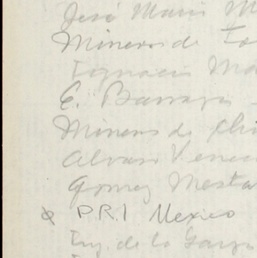 José Maria M
Mineros de
Ignacio Ma
E. Barraza
Mineros de Chi
Alvaro
Gomez Mesta
P.R.I Mexico
Ing. de la Garza